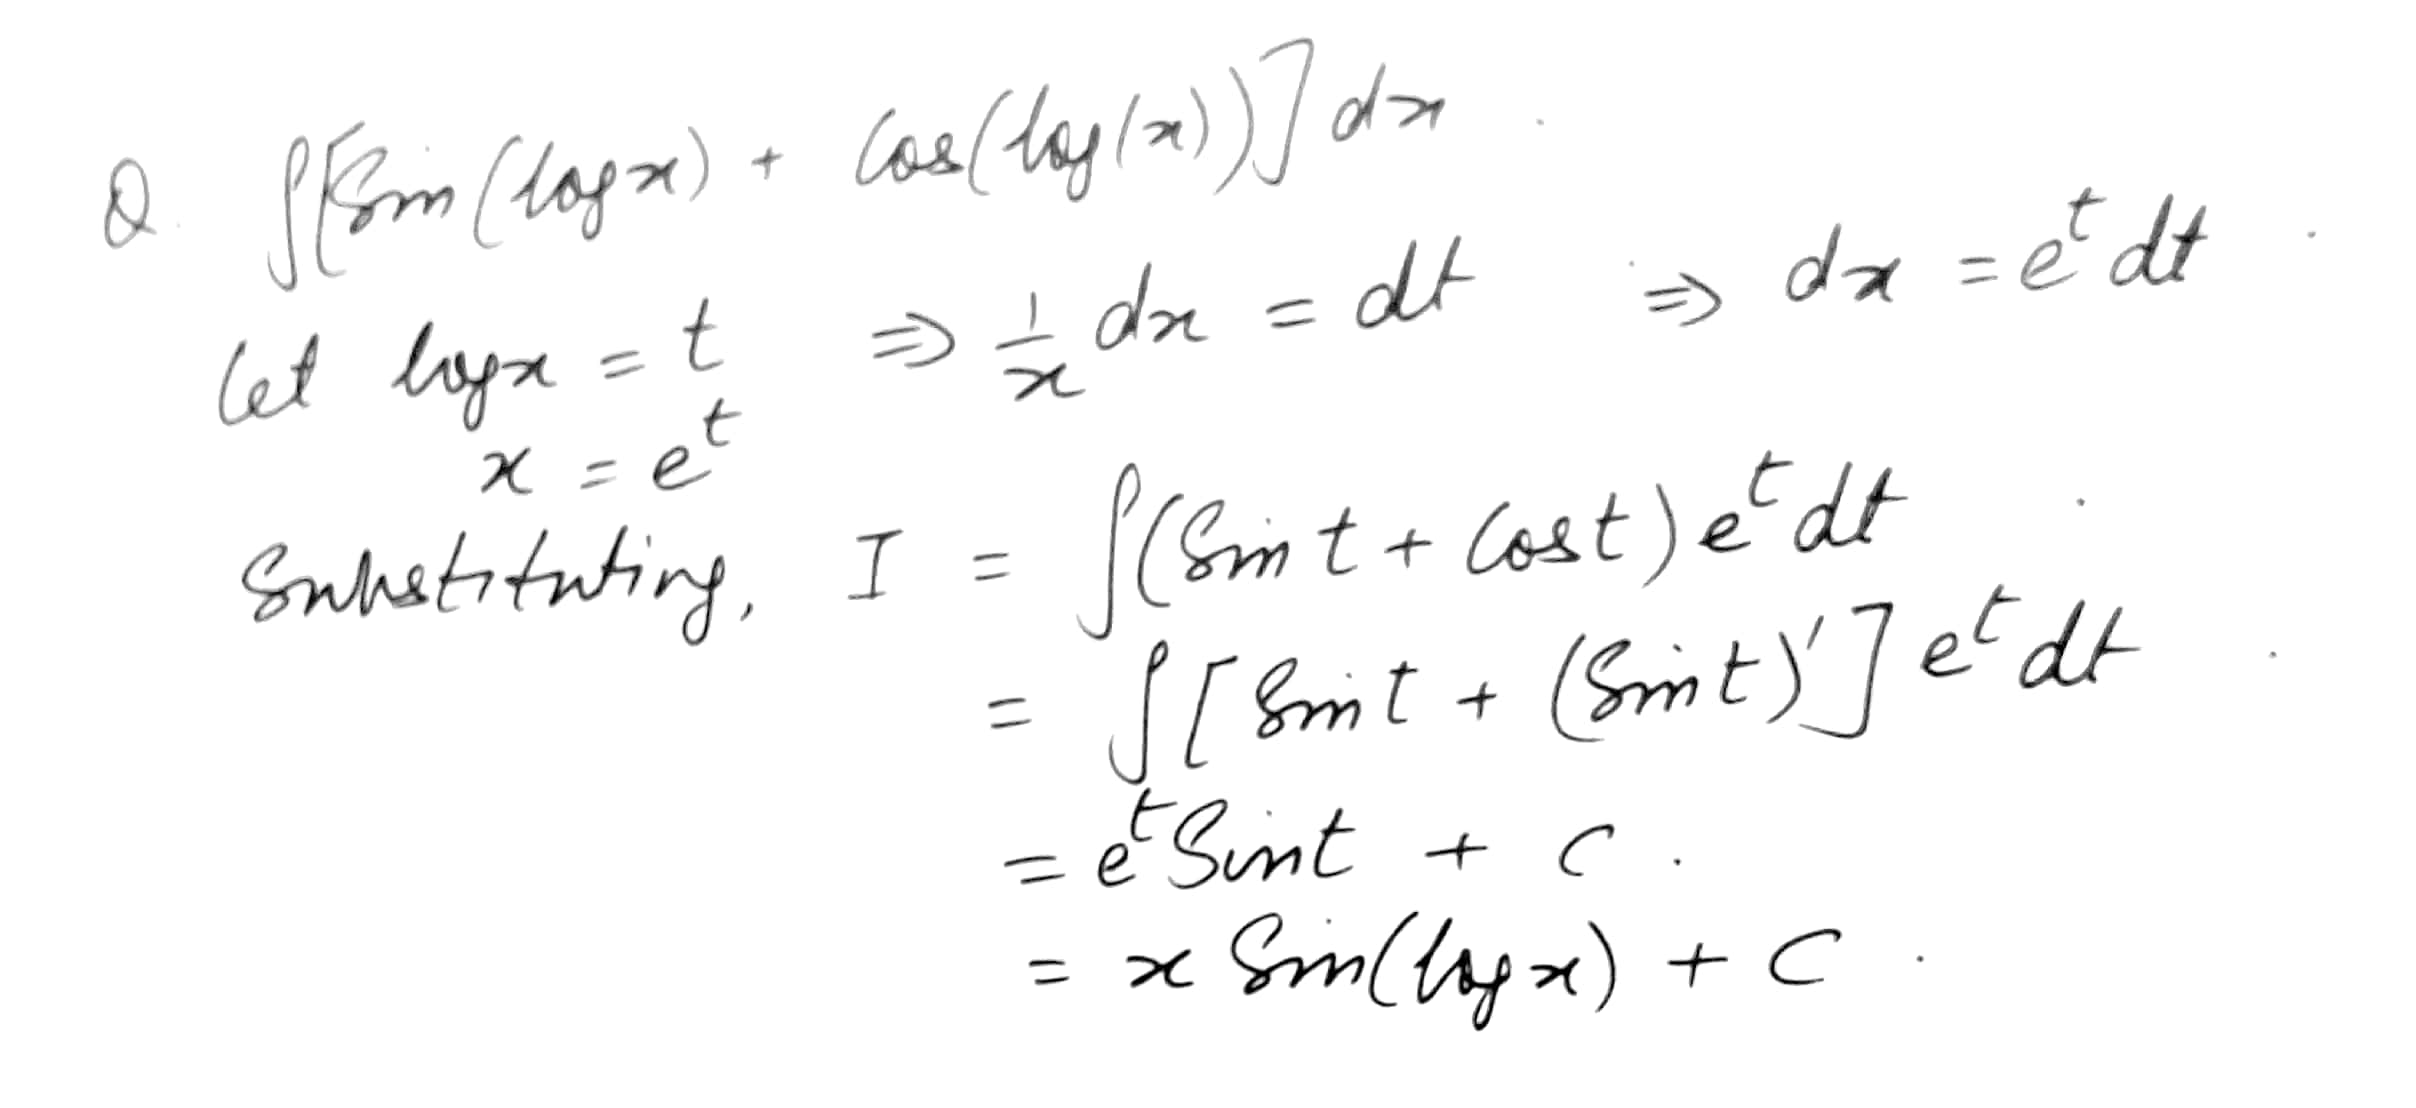 Q. ∫[Sin(logx) + Cos(log(x))] dx.
Let logx = t ⇒ 1/x dx = dt ⇒ dx = e^t dt.
x = e^t
Substituting, I = ∫(Sin t + Cos t) e^t dt.
= ∫[Sin t + (Sin t)'] e^t dt.
= e^t Sin t + C.
= x Sin(log x) + C.